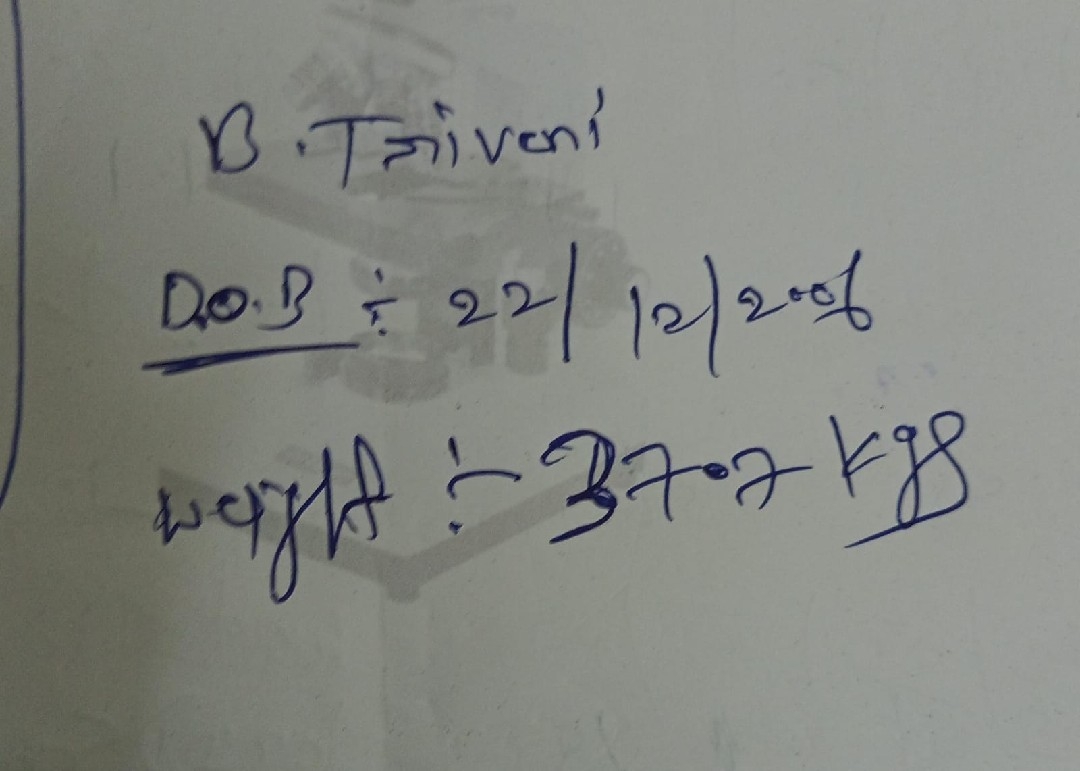 B. Triveni
D.O.B ÷ 22/12/2006
weight ÷ 37.7 kgs